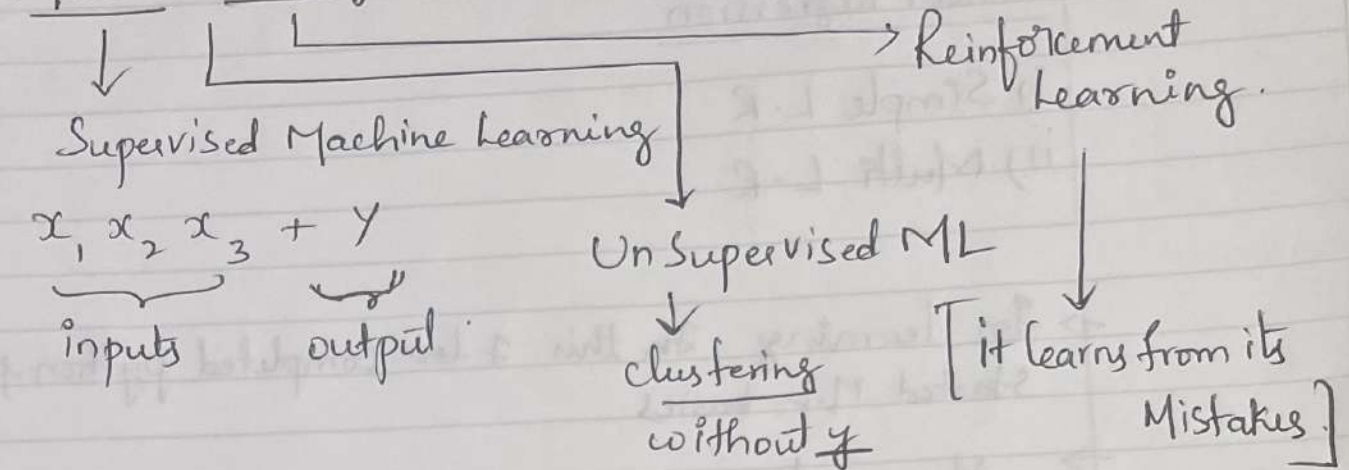 Reinforcement
Learning.
Supervised Machine Learning
x₁ x₂ x₃ + y
inputs output
UnSupervised ML
clustering
without y
[it learns from its
Mistakes]